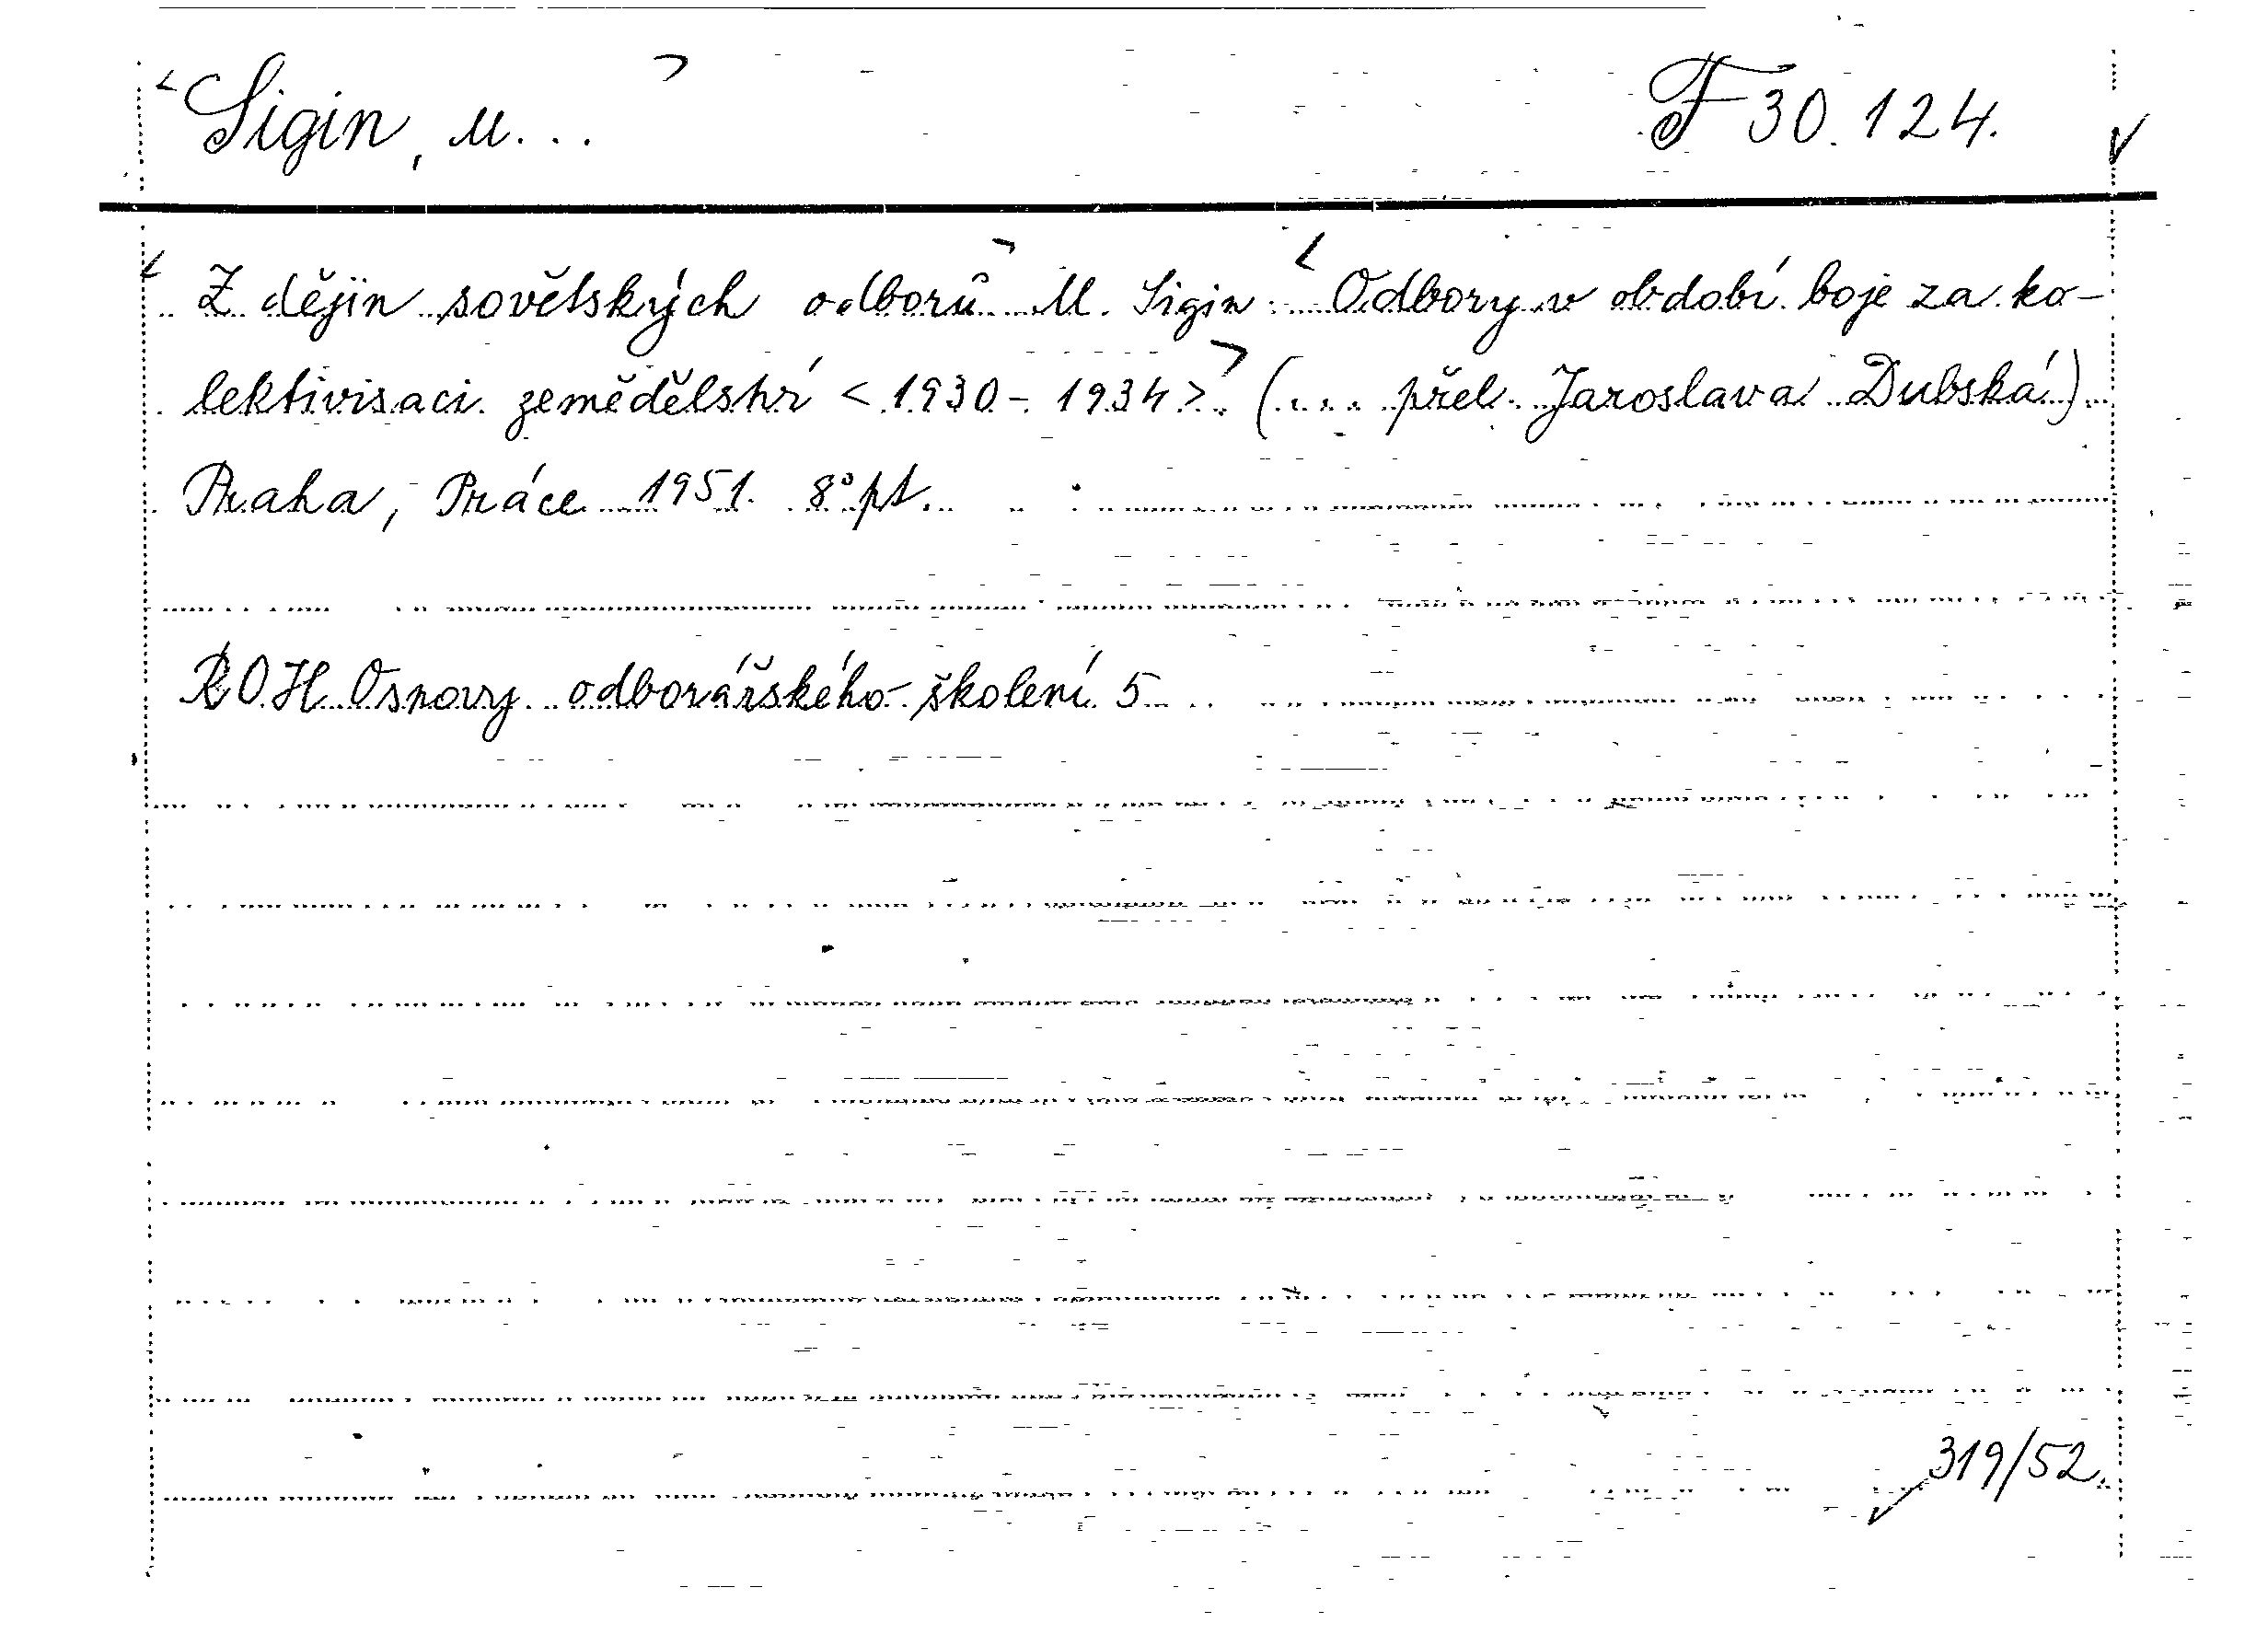 <Sigin, M...> F 30.124.
<Z dějin sovětských odborů> M. Sigin: <Odbory v období boje za ko-
lektivisaci zemědělství <1930-1934>>. (... přel. Jaroslava Dubská).
Praha, Práce 1951. 8° pt.
ROH Osnovy odborářského školení 5
319/52.